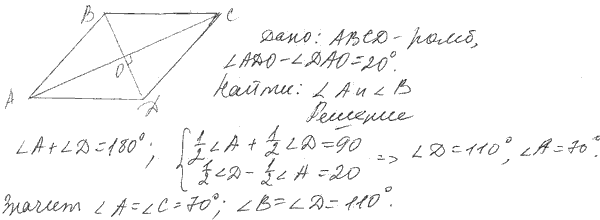 B C
Дано: ABCD - ромб,
∠ADO - ∠DAO = 20°.
O
Найти: ∠A и ∠B
A D
Решение
∠A + ∠D = 180°; { ½∠A + ½∠D = 90
½∠D - ½∠A = 20 => ∠D = 110°, ∠A = 70°.
Значит ∠A = ∠C = 70°; ∠B = ∠D = 110°.